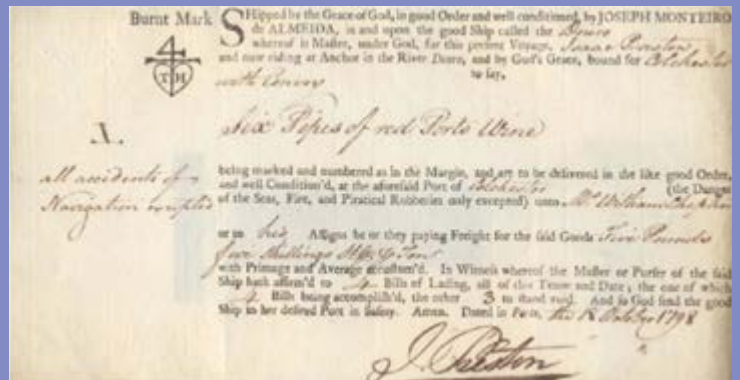 Burnt Mark
4
T H
SHipped by the Grace of God, in good Order and well conditioned, by JOSEPH MONTEIRO
de ALMEIDA, in and upon the good Ship called the Douro
whereof is Master, under God, for this present Voyage, Isaac Preston
and now riding at Anchor in the River Douro, and by God's Grace, bound for Colchester
with Convoy to say,
Six Pipes of red Porto Wine
all accidents of
Navigation excepted
being marked and numbered as in the Margin, and are to be delivered in the like good Order,
and well Condition'd, at the aforesaid Port of Colchester (the Danger
of the Seas, Fire, and Piratical Robberies only excepted) unto Mr William
or to his Assigns he or they paying Freight for the said Goods Five Pounds
five Shillings
with Primage and Average accustom'd. In Witness whereof the Master or Purser of the said
Ship hath affirm'd to 4 Bills of Lading, all of this Tenor and Date; the one of which
4 Bills being accomplish'd, the other 3 to stand void. And so God send the good
Ship to her desired Port in Safety. Amen. Dated in Porto, the 18 October 1798
J. Preston